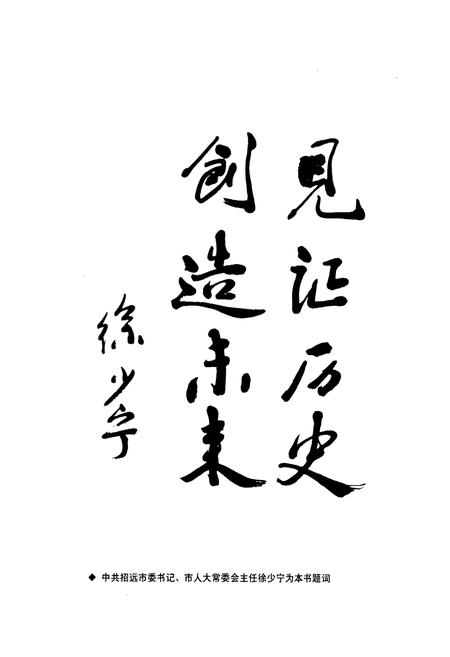 见证历史
创造未来
徐少宁
◆ 中共招远市委书记、市人大常委会主任徐少宁为本书题词